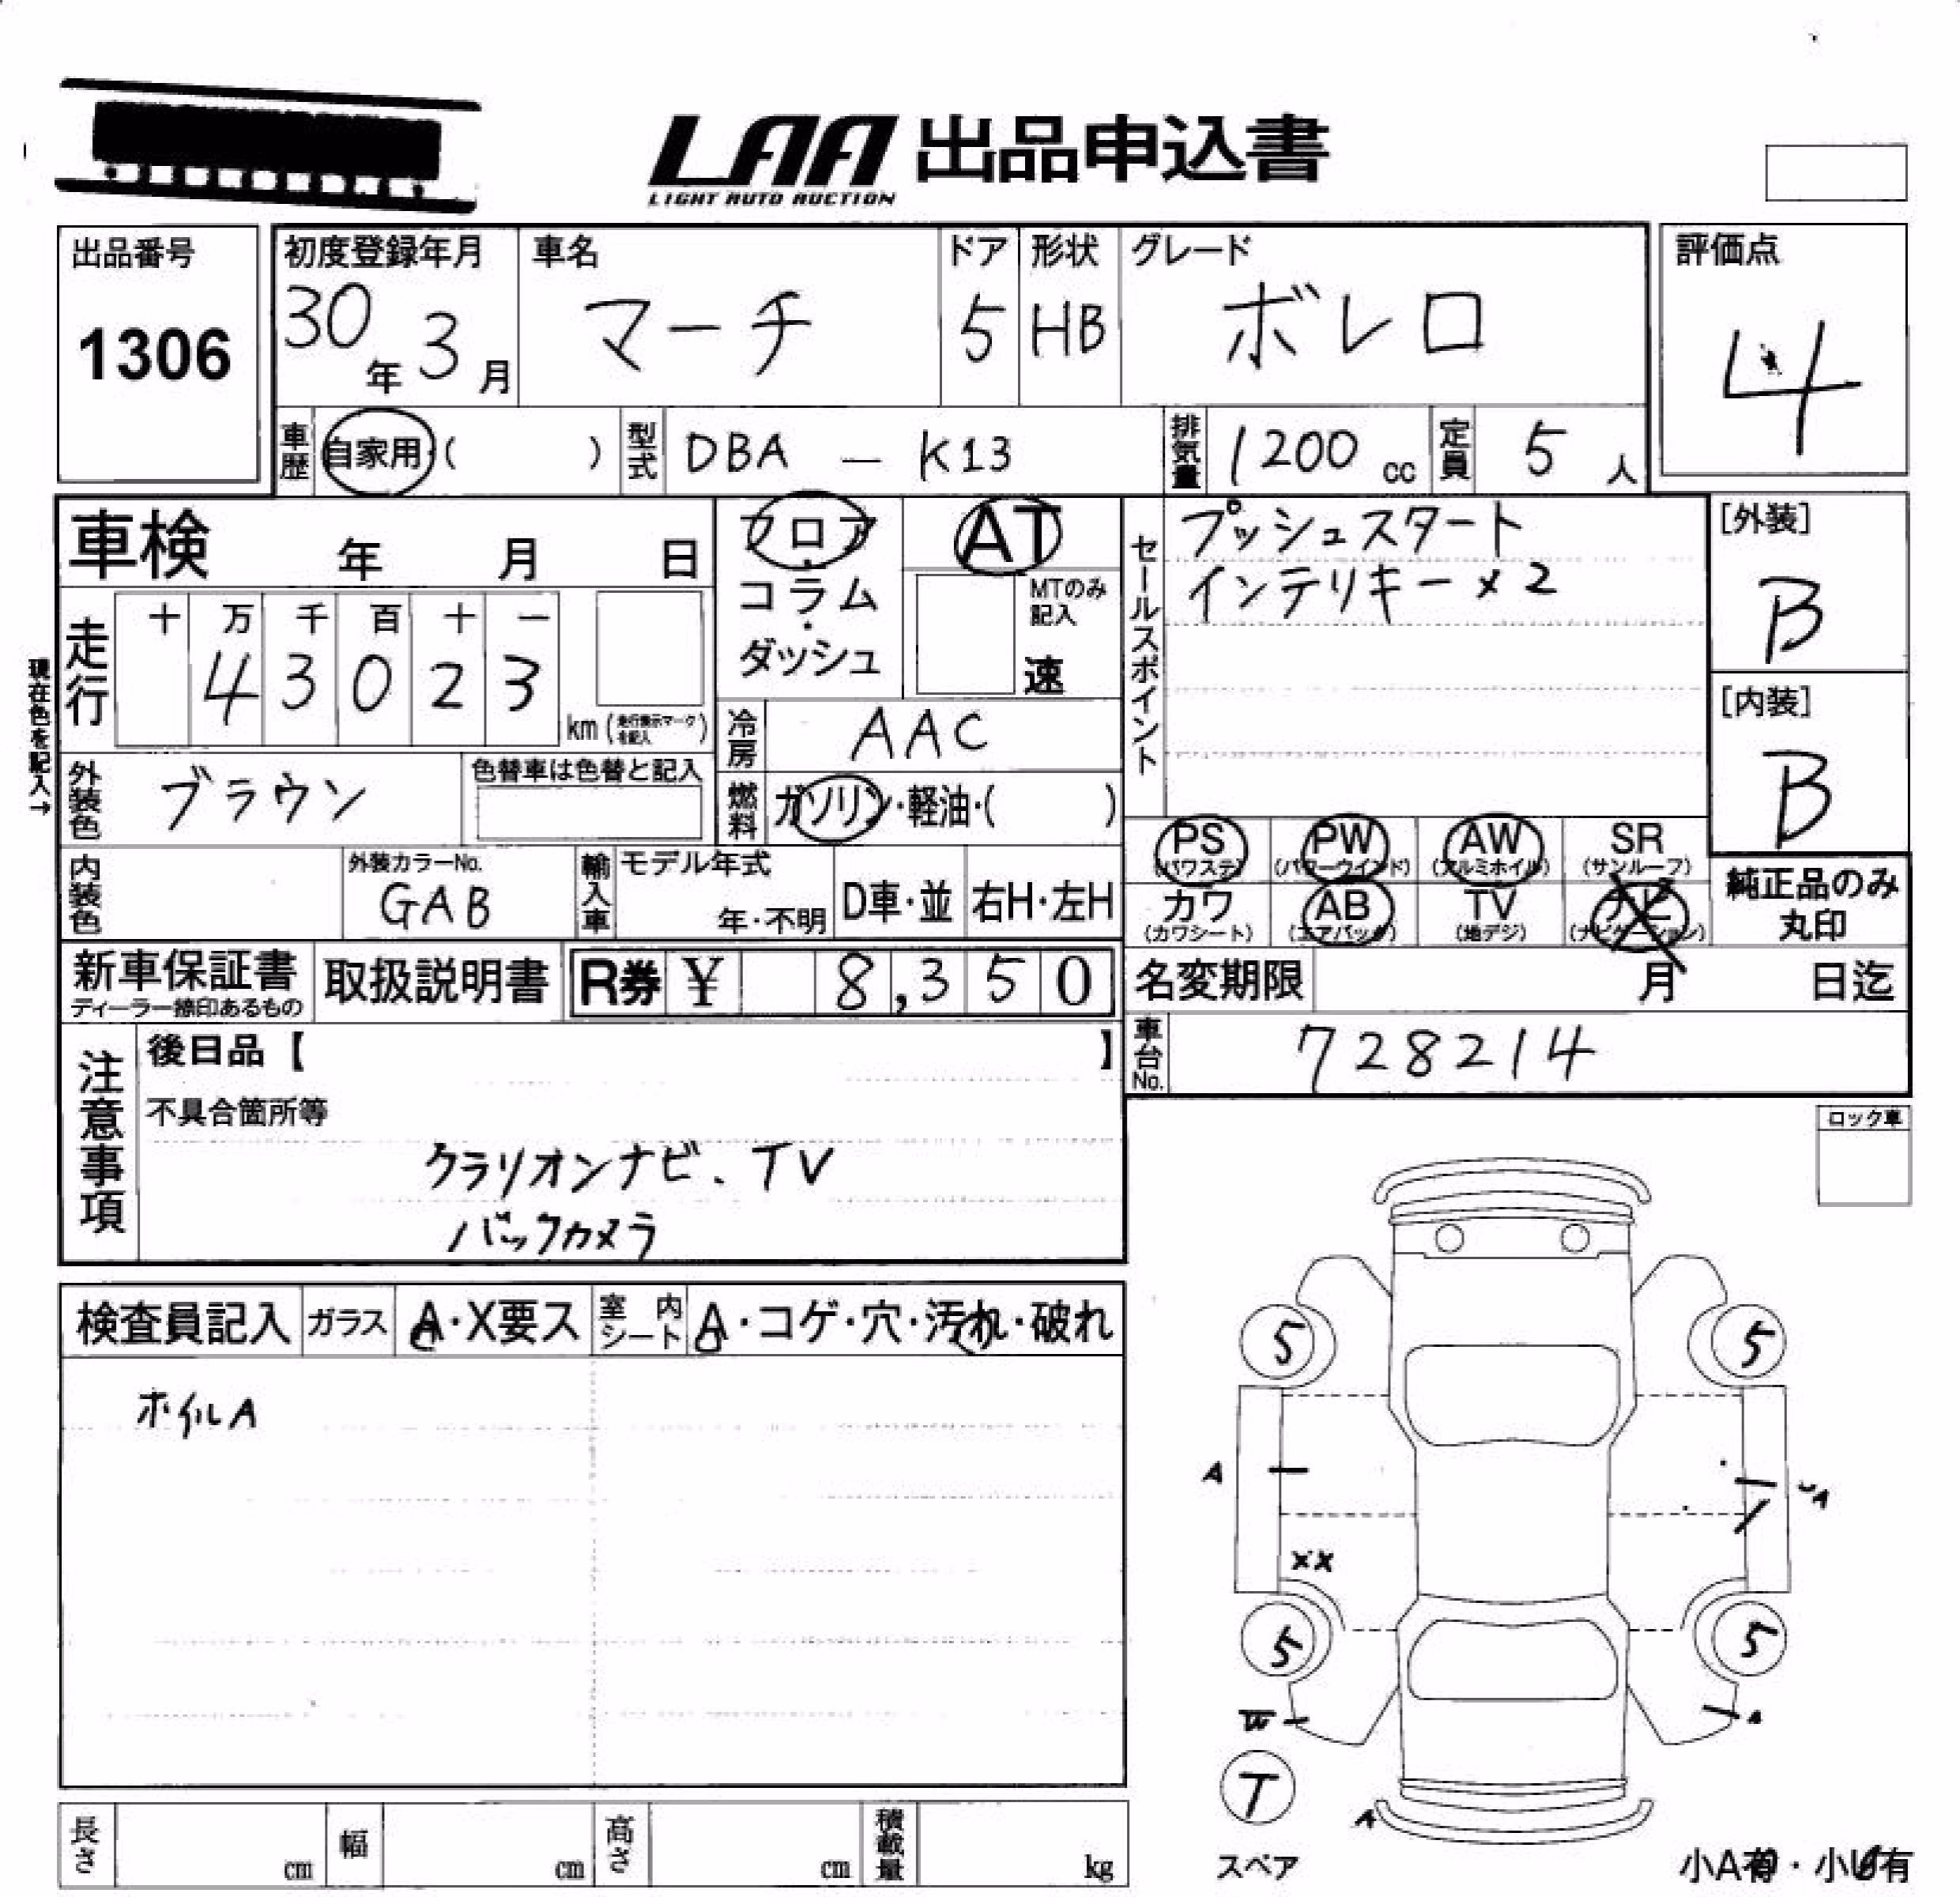 LAA 出品申込書
LIGHT AUTO AUCTION
出品番号
1306
初度登録年月
30年 3月
車名
マーチ
ドア
5
形状
HB
グレード
ボレロ
評価点
4
車歴 自家用・( )
型式 DBA — K13
排気量 1200 cc
定員 5 人
車検 年 月 日
フロア・コラム・ダッシュ
AT
MTのみ記入
速
セールスポイント
プッシュスタート
インテリキー×2
[外装]
B
[内装]
B
現在色を記入→
走行
十 万 千 百 十 一
4 3 0 2 3
km (走行表示マークを記入)
冷房 AAC
燃料 ガソリン・軽油・( )
外装色 ブラウン
色替車は色替と記入
内装色
外装カラーNo.
GAB
輸入車
モデル年式
年・不明
D車・並
右H・左H
PS (パワステ)
PW (パワーウインド)
AW (アルミホイル)
SR (サンルーフ)
カワ (カワシート)
AB (エアバック)
TV (地デジ)
ナビ (ナビゲーション)
純正品のみ
丸印
新車保証書
ディーラー捺印あるもの
取扱説明書
R券 ¥ 8,350
名変期限 月 日迄
車台No. 728214
注意事項
後日品【 】
不具合箇所等
クラリオンナビ、TV
バックカメラ
ロック車
検査員記入
ガラス A・X要ス
室内シート A・コゲ・穴・汚れ・破れ
ホイルA
5 5
A
XX
5 5
T
A
スペア
小A有・小U有
長さ cm
幅 cm
高さ cm
積載量 kg